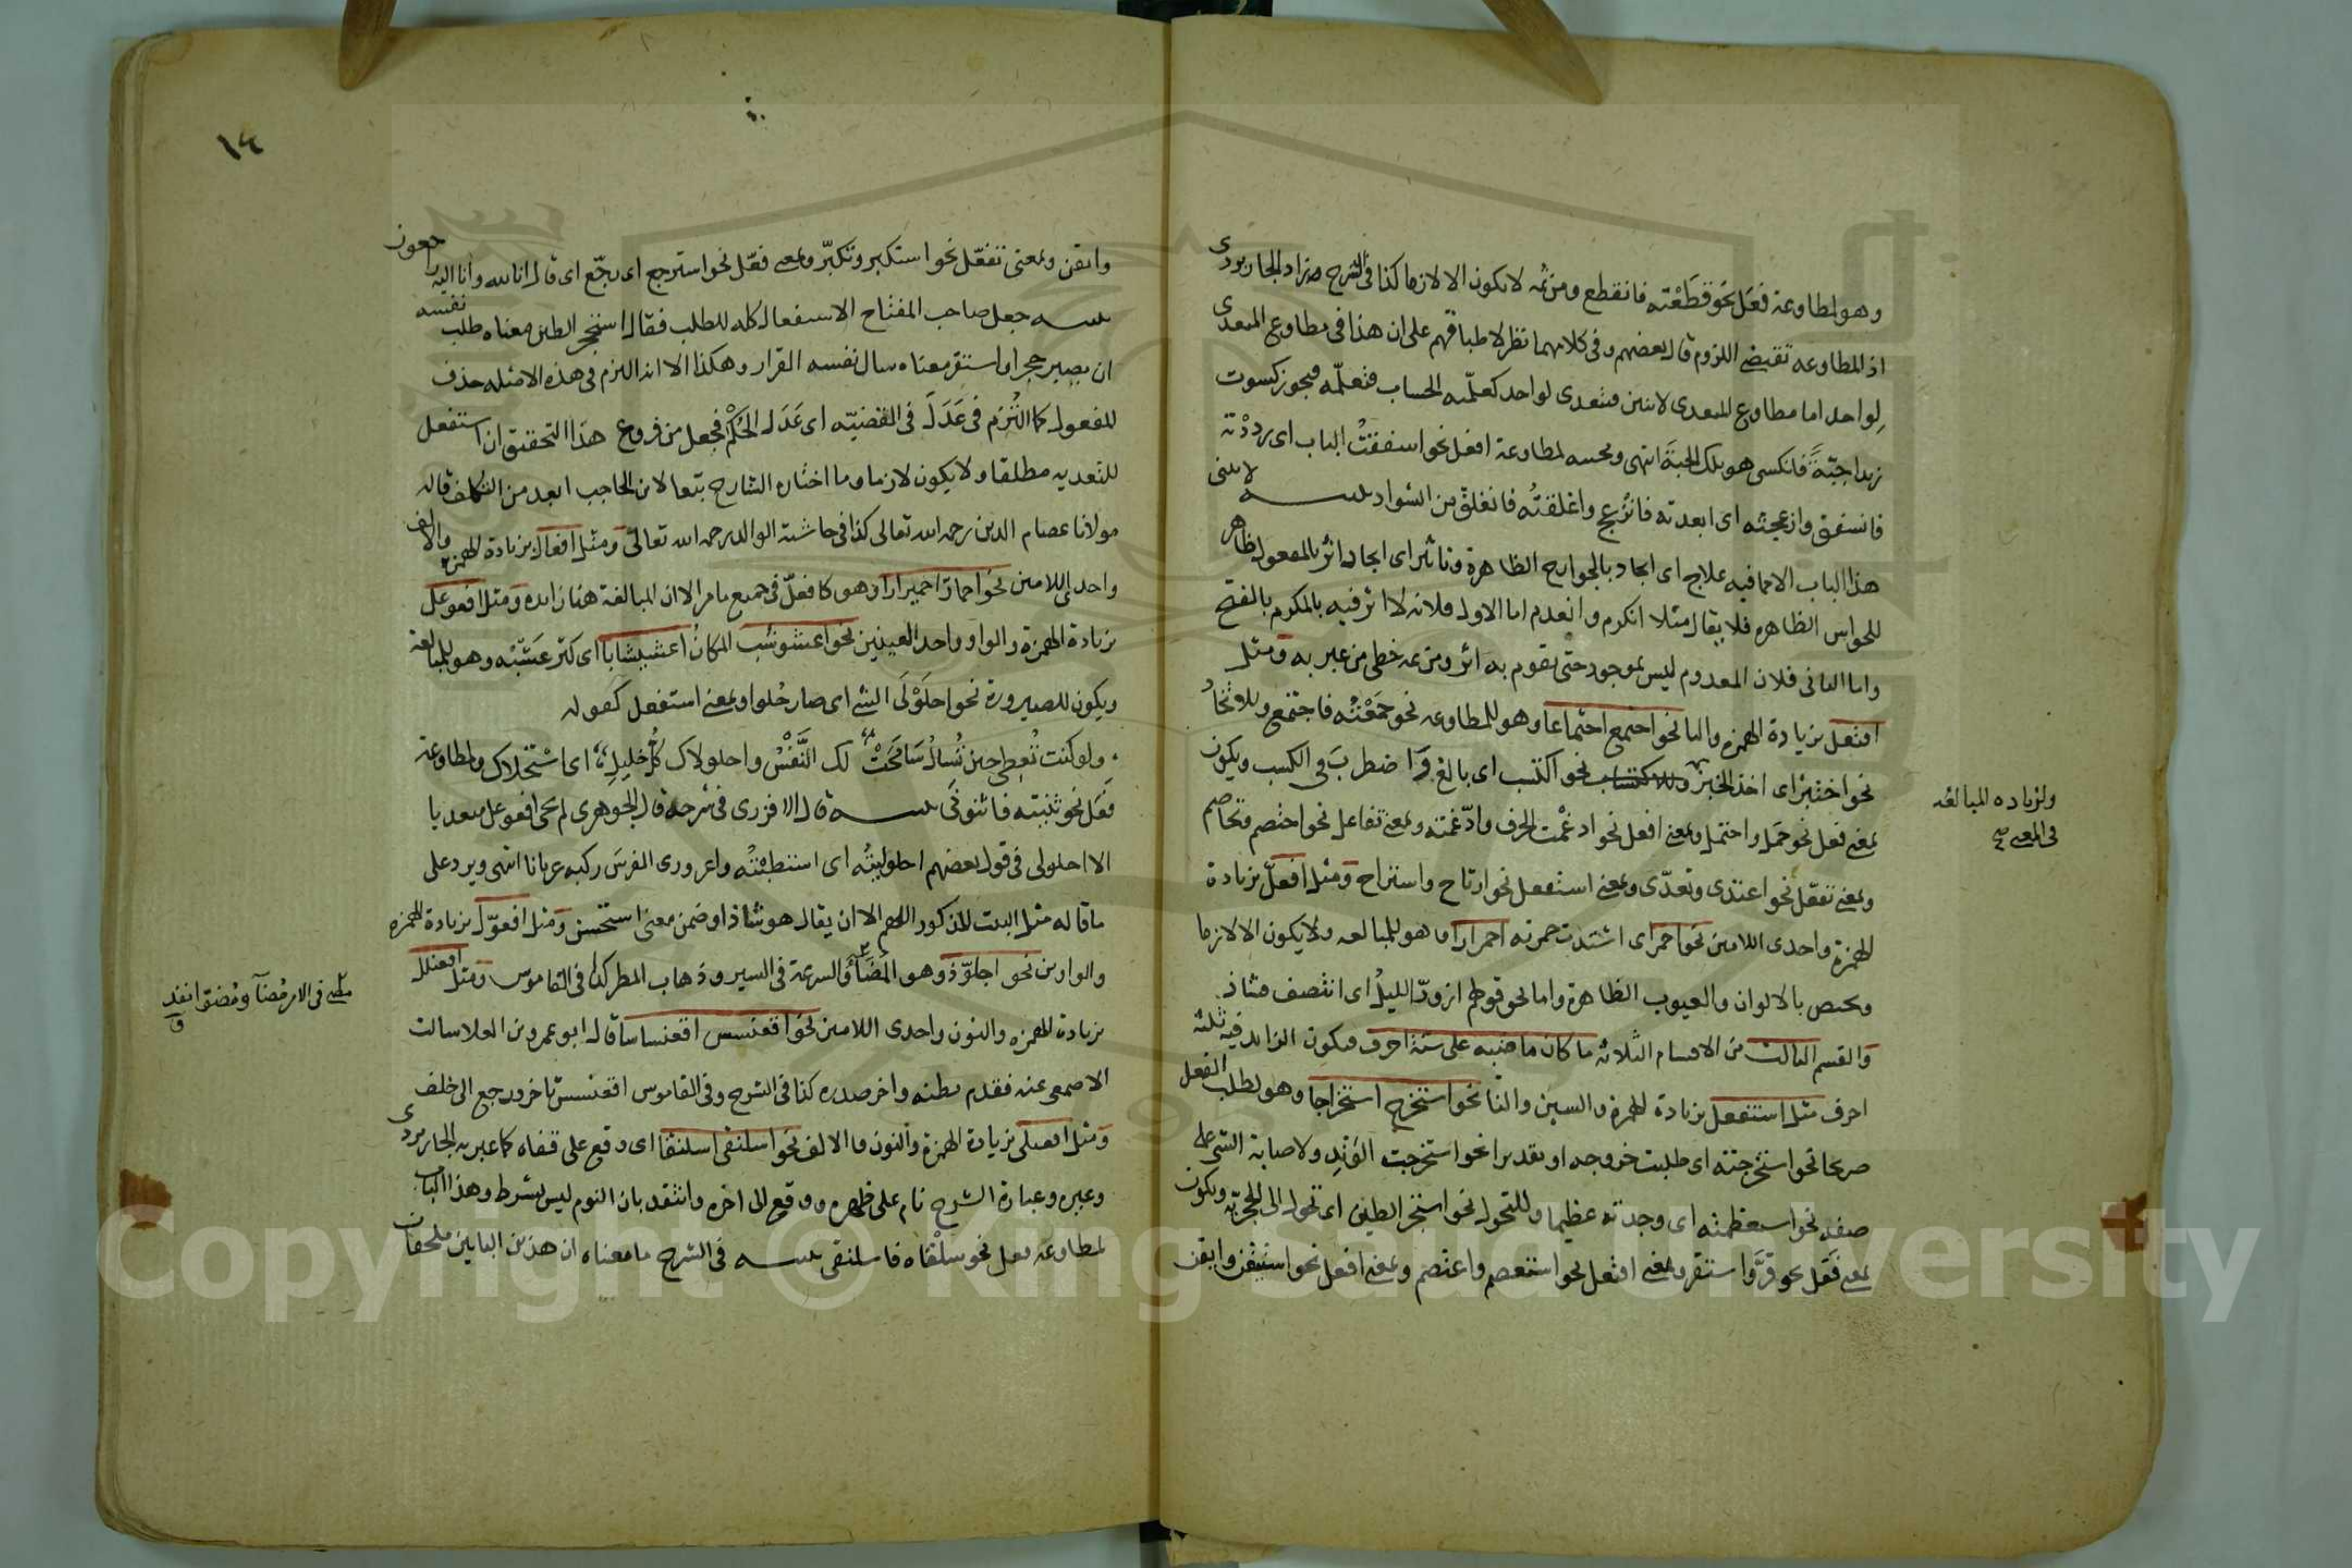 وهو لمطاوعة فعَل نحو قطَعْته فانقطع ومن ثمه لا يكون الا لازما كذا فى الشرح وزاد الجاربردى
اذ المطاوعه تقتضى اللزوم قال بعضهم وفى كلامهما نظر لاطباقهم على ان هذا فى مطاوع المتعدى
لواحد اما مطاوع المتعدى لاثنين فيتعدى لواحد كعلّمته الحساب فتعلّمه فيجوز كسوت
زيدا جبّةً فانكسى هو تلك الجبة انتهى ومجيه لمطاوعة افعل نحو اسفقتُ الباب اى رددْته
فانسفق وازعجته اى ابعدته فانزعج واغلقتُه فانغلق من الشواد تنبيه لا يبنى
هذا الباب الا مما فيه علاج اى ايجاد بالجوارح الظاهرة وتاثير اى ايجاد اثر بالمفعول ظاهر
للحواس الظاهره فلا يقال مثلا انكرم وانعدم اما الاول فلانه لا اثر فيه بالمكرم بالفتح
واما الثانى فلان المعدوم ليس بموجود حتى يقوم به اثر ومن ثمه خطى من عبر به ومثل
افتعل بزيادة الهمزه والتا نحو اجتمع اجتماعا وهو للمطاوعه نحو جمَعْتُه فاجتمع وللاتخاذ
نحو اختبز اى اخذ الخبز وللاكتساب نحو اكتسب اى بالغ واضطرب فى الكسب ويكون
ولزياده المبالغه
فى المعنى صح
بمعنى فعل نحو حَمَل واحتمل وبمعنى افعل نحو ادغمْت الحرف وادّغمته وبمعنى تفاعل نحو اختصم وتخاصم
وبمعنى تفعّل نحو اعتدى وتعدّى وبمعنى استفعل نحو ارتاح واستراح ومثل افعلّ بزيادة
الهمزة واحدى اللامين نحو احمر اى اشتدت حمرته احمرارا وهو للمبالغه ولا يكون الا لازما
ويختص بالالوان والعيوب الظاهرة واما نحو قولهم ازورّ الليلُ اى انتصف فشاذ
والقسم الثالث من الاقسام الثلاثه ما كان ماضيه على ستة احرف فيكون الزايد فيه ثلثه
احرف مثل استفعل بزيادة الهمزه والسين والتا نحو استخرج استخراجا وهو لطلب الفعل
صريحا نحو استخرجته اى طلبت خروجه او تقديرا نحو استخرجت الوَتِد ولاصابة الشى على
صفه نحو استعظمته اى وجدته عظيما وللتحول نحو استحجر الطين اى تحول الى الحجريّه ويكون
بمعنى فَعَل نحو قرّ واستقر وبمعنى افتعل نحو استعصم واعتصم وبمعنى افعل نحو استيقن وايقن
١٤
وايقن وبمعنى تفعّل نحو استكبر وتكبّر وبمعنى فعّل نحو استرجع اى رجّع اى قال انا لله وانا اليه راجعون
تنبيه جعل صاحب المفتاح الاستفعال كله للطلب فقال استحجر الطين معناه طلب نفسه
ان يصير حجرا واستقر معناه سال نفسه القرار وهكذا الا انه التزم فى هذه الامثله حذف
المفعول كما التُزم فى عَدَلَ فى القضيّه اى عَدَل الحُكْم فجعل من فروع هذا التحقيق ان استفعل
للتعديه مطلقا ولا يكون لازما وما اختاره الشارح تبعا لابن الحاجب ابعد من التكلف قاله
مولانا عصام الدين رحمه الله تعالى كذا فى حاشية الوالد رحمه الله تعالى ومثل افعالّ بزيادة الهمزه والالف
واحدى اللامين نحو احمارّ احميرارا وهو كافعلّ فى جميع ما مر الا ان المبالغة هنا زايده ومثل افعوعل
بزيادة الهمزه والواو واحد العينين نحو اعشوشب المكان اعشيشابا اى كثر عشبه وهو للمبالغه
ويكون للصيرورة نحو احلَوْلَى الشى اى صار حُلوا وبمعنى استفعل كقوله
ولو كنت تُعطِى حين تُسالُ سَامَحَتْ لك النَّفْسُ واحلولاك كُلُّ خليلِ اى استحلاك ولمطاوعة
فعَل نحو ثنيته فاثنونَى تنبيه قال الافزرى فى شرحه قال الجوهرى لم يجى افعوعل متعديا
الا احلولى فى قول بعضهم احلوليتُه اى استطبْتُه واعرورى الفرسَ ركبه عريانا انتهى ويرد على
ما قاله مثل البيت المذكور اللهم الا ان يقال هو شاذ او ضمن معنى استحسن ومثل افعوّل بزيادة الهمزه
والواوين نحو اجلوّذ وهو المَضَاءُ والسرعة فى السير وذهاب المطر كذا فى القاموس ومثل افعنلل
مضى فى الامر مُضآء ومُضوّا نفذ
ق
بزيادة الهمزه والنون واحدى اللامين نحو اقعنسس اقعنساسا قال ابو عمرو بن العلا سالت
الاصمعى عنه فقدم بطنه واخر صدره كذا فى الشرح وفى القاموس اقعنسس تاخر ورجع الى خلف
ومثل افعنلى بزيادة الهمزة والنون والالف نحو اسلنقى اسلنقا اى وقع على قفاه كما عبر به الجاربردى
وغيره وعبارة الشرح نام على ظهره ووقع الى اخره وانتقد بان النوم ليس بشرط وهذا الباب
لمطاوعه فعل نحو سلْقاه فاسلنقى تنبيه فى الشرح ما معناه ان هذين البابين ملحقان
Copyright © King Saud University